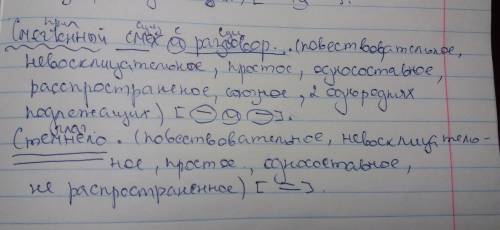 прил сущ с сущ
Смазанный смех а разговор... (повествовательное,
невосклицательное, простое, односоставное,
расспространеное, союзное, 2 однородних
подлежащих) [ а ].
глаг
Стемнело. (повествовательное, невосклицатель-
ное, простое, односоставное,
не распространенное) [ = ].